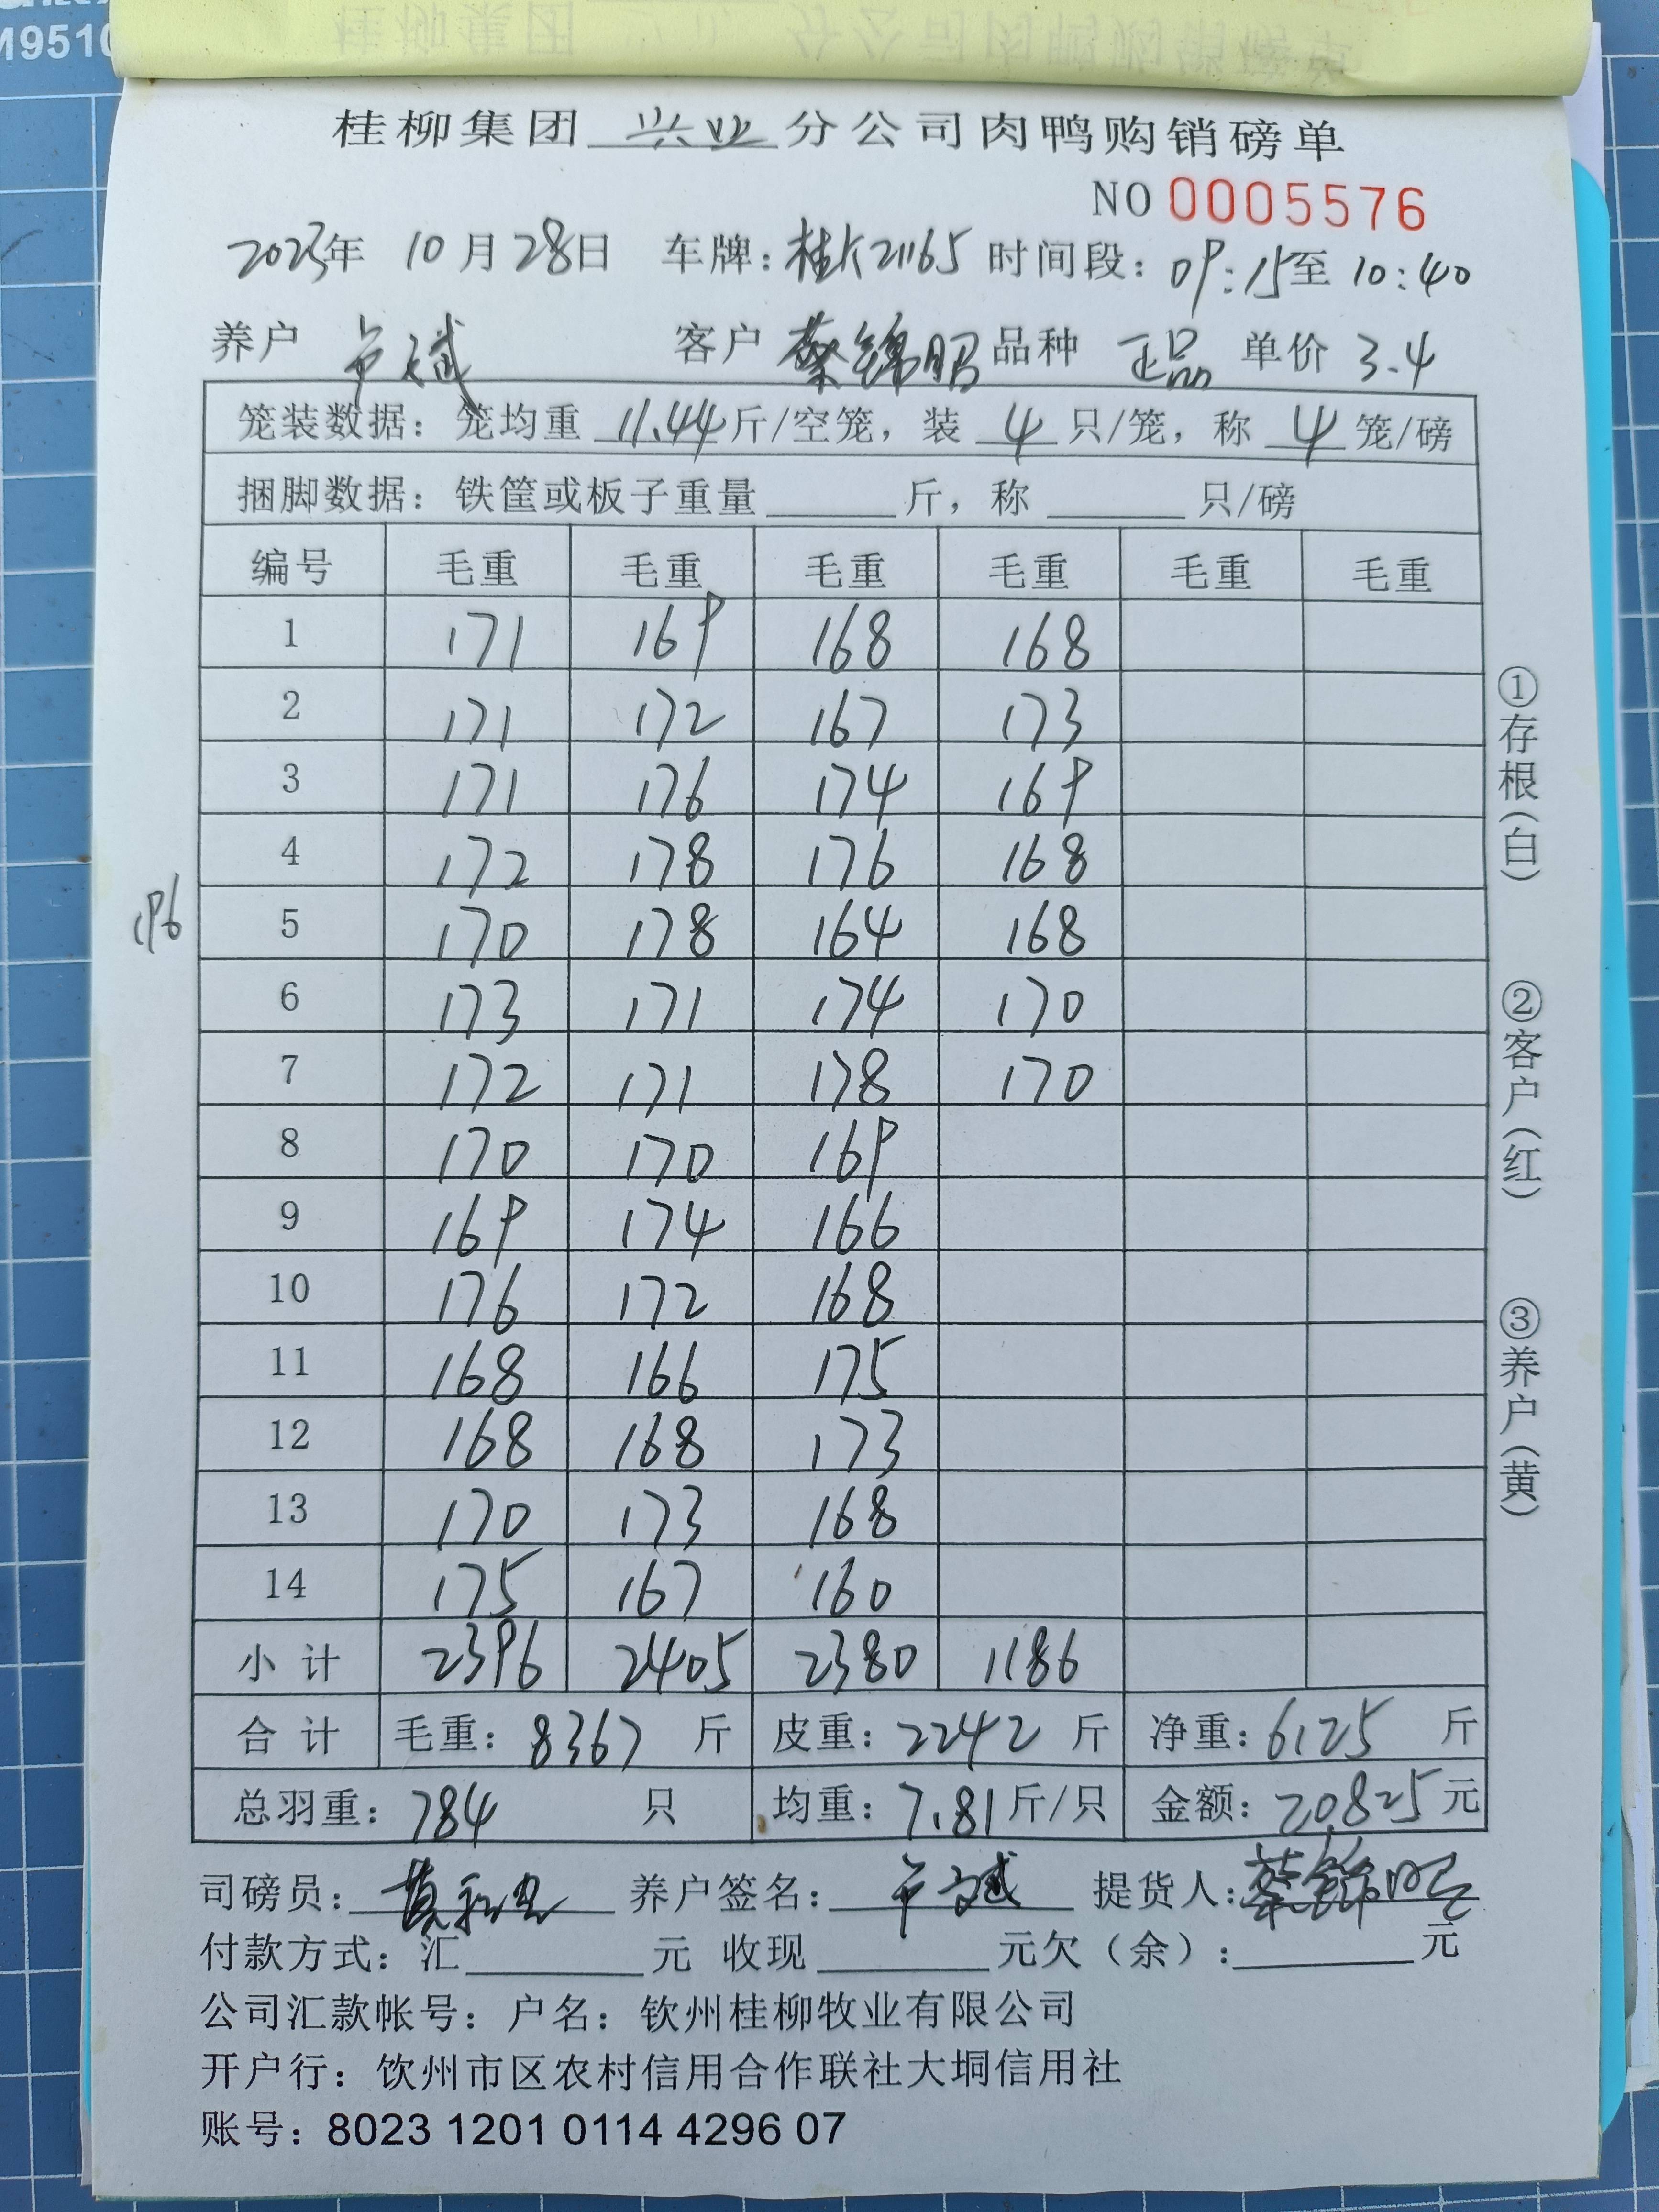 M9510
桂柳集团 兴业 分公司肉鸭购销磅单
NO 0005576
2023年 10月28日 车牌：桂K21165 时间段：09:15至10:40
养户 卢斌 客户 蔡锦昭 品种 正品 单价 3.4
笼装数据：笼均重 11.44 斤/空笼，装 4 只/笼，称 4 笼/磅
捆脚数据：铁筐或板子重量______斤，称______只/磅
编号 毛重 毛重 毛重 毛重 毛重 毛重
1 171 169 168 168
2 171 172 167 173
3 171 176 174 169
4 172 178 176 168
196
5 170 178 164 168
6 173 171 174 170
7 172 171 178 170
8 170 170 169
9 169 174 166
10 176 172 168
11 168 166 175
12 168 168 173
13 170 173 168
14 175 167 160
小计 2396 2405 2380 1186
合计 毛重：8367 斤 皮重：2242 斤 净重：6125 斤
总羽重：784 只 均重：7.81斤/只 金额：20825元
司磅员： 养户签名： 提货人：蔡锦昭
付款方式：汇______元 收现______元欠（余）：______元
公司汇款帐号：户名：钦州桂柳牧业有限公司
开户行：钦州市区农村信用合作联社大垌信用社
账号：8023 1201 0114 4296 07
①存根（白）
②客户（红）
③养户（黄）